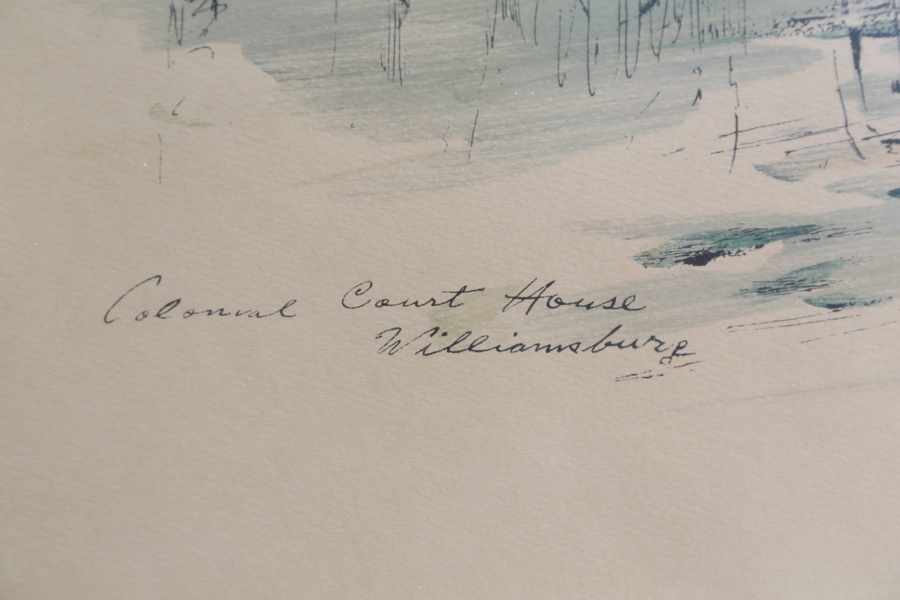 Colonial Court House
Williamsburg